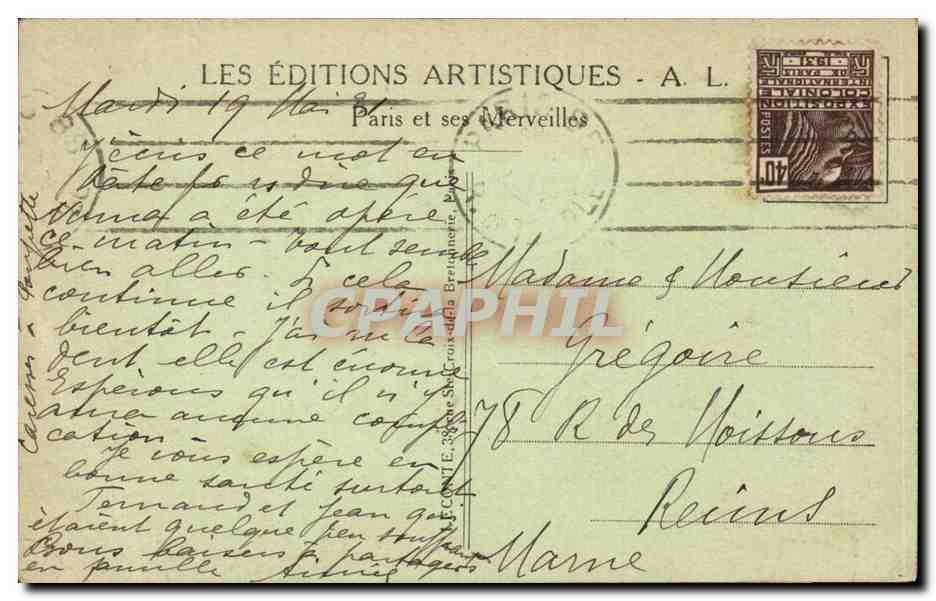 LES ÉDITIONS ARTISTIQUES - A. L.
Paris et ses Merveilles
EXPOSITION
COLONIALE
INTERNATIONALE
DE PARIS
1931
POSTES
40c
Mardi 19 Mai 31
J'écris ce mot en
hâte pr vs dire que
a été opéré
ce matin - tout semble
bien aller. Si cela
continue il sortira
bientôt - J'ai vu la
dent elle est énorme
Espérons qu'il n'y
aura aucune compli-
cation -
Je vous espère en
bonne santé surtout
Fernand et Jean qui
étaient quelque peu souffrants
Bons baisers à partager
en famille Aimée
Caresses à
LECONTE, 38, rue Ste-Croix-de-la-Bretonnerie, Paris
Madame & Monsieur
Grégoire
78 R des Moissons
Reims
Marne
CPAPHIL